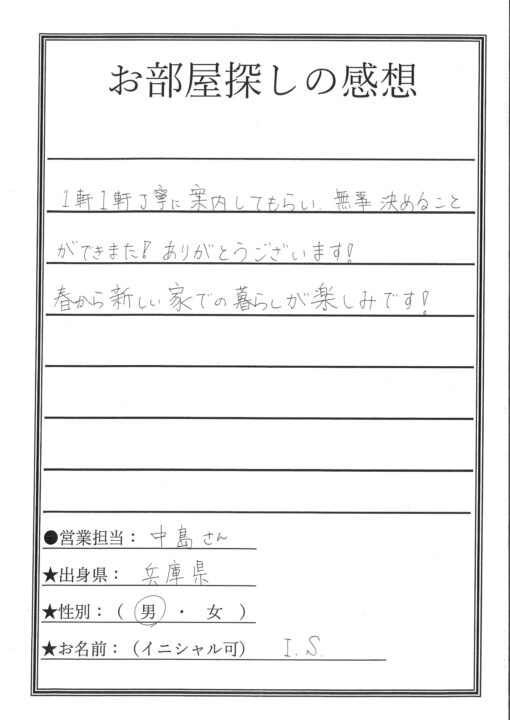 お部屋探しの感想
1軒1軒丁寧に案内してもらい、無事決めること
ができまた!ありがとうございます!
春から新しい家での暮らしが楽しみです!
●営業担当:中島さん
★出身県:兵庫県
★性別:( 男 ・ 女 )
★お名前:(イニシャル可) I.S.